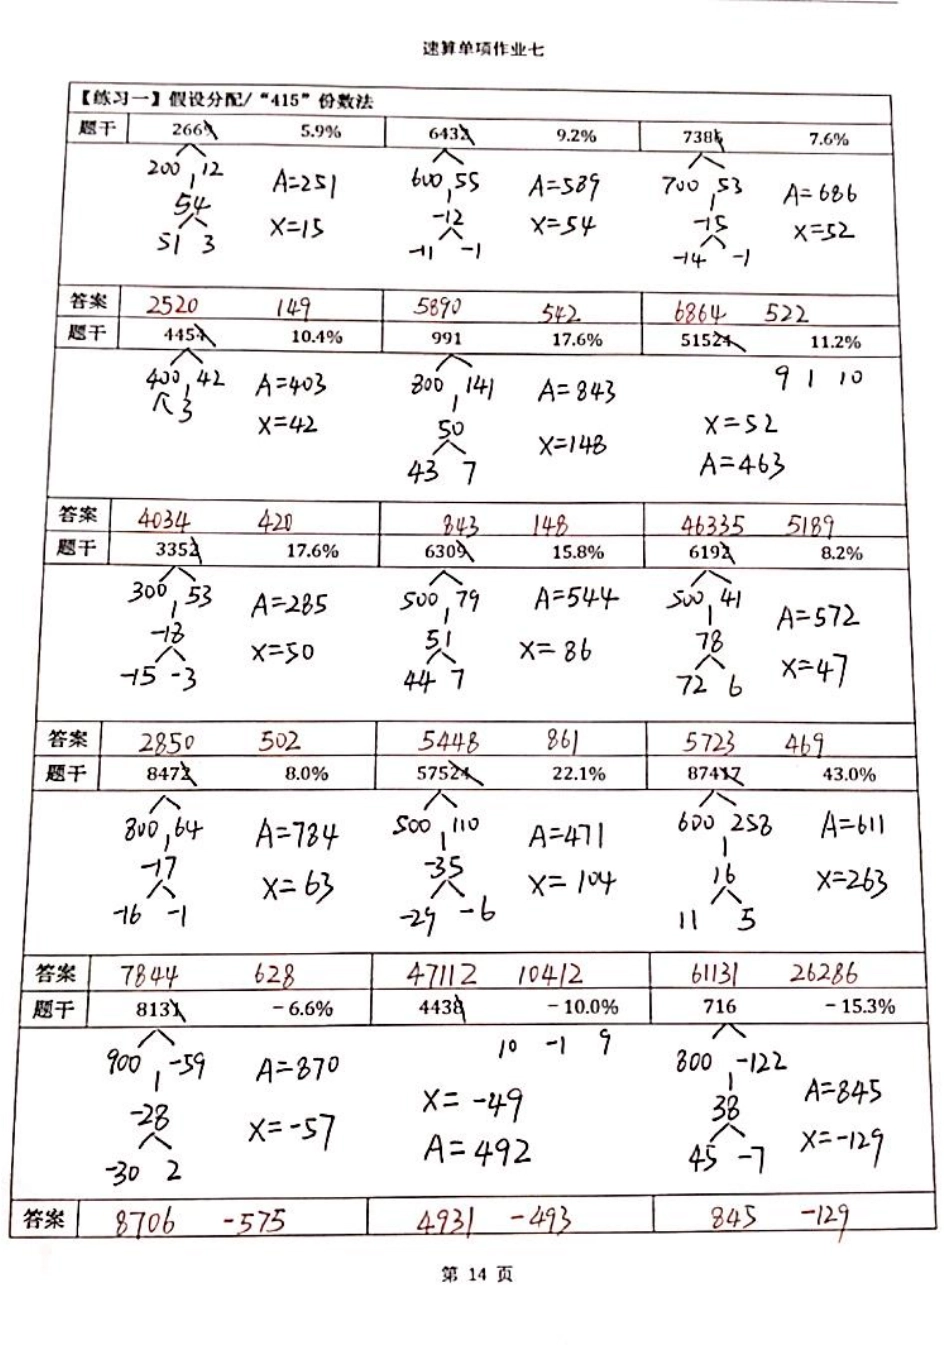 速算单项作业七
【练习一】假设分配/“415”份数法
题干 2669 5.9% 6432 9.2% 7386 7.6%
200 12 A=251 600 55 A=589 700 53 A=686
54 X=15 -12 X=54 -15 X=52
51 3 -11 -1 -14 -1
答案 2520 149 5890 542 6864 522
题干 4454 10.4% 991 17.6% 51524 11.2%
400 42 A=403 800 141 A=843 9 1 10
3 X=42 50 X=148 X=52
43 7 A=463
答案 4034 420 843 148 46335 5189
题干 3352 17.6% 6309 15.8% 6192 8.2%
300 53 A=285 500 79 A=544 500 41 A=572
-18 X=50 51 X=86 78 X=47
-15 -3 44 7 72 6
答案 2850 502 5448 861 5723 469
题干 8472 8.0% 57524 22.1% 87417 43.0%
800 64 A=784 500 110 A=471 600 258 A=611
-17 X=63 -35 X=104 16 X=263
-16 -1 -29 -6 11 5
答案 7844 628 47112 10412 61131 26286
题干 8131 -6.6% 4438 -10.0% 716 -15.3%
900 -59 A=870 10 -1 9 800 -122 A=845
-28 X=-57 X=-49 38 X=-129
-30 2 A=492 45 -7
答案 8706 -575 4931 -493 845 -129
第 14 页